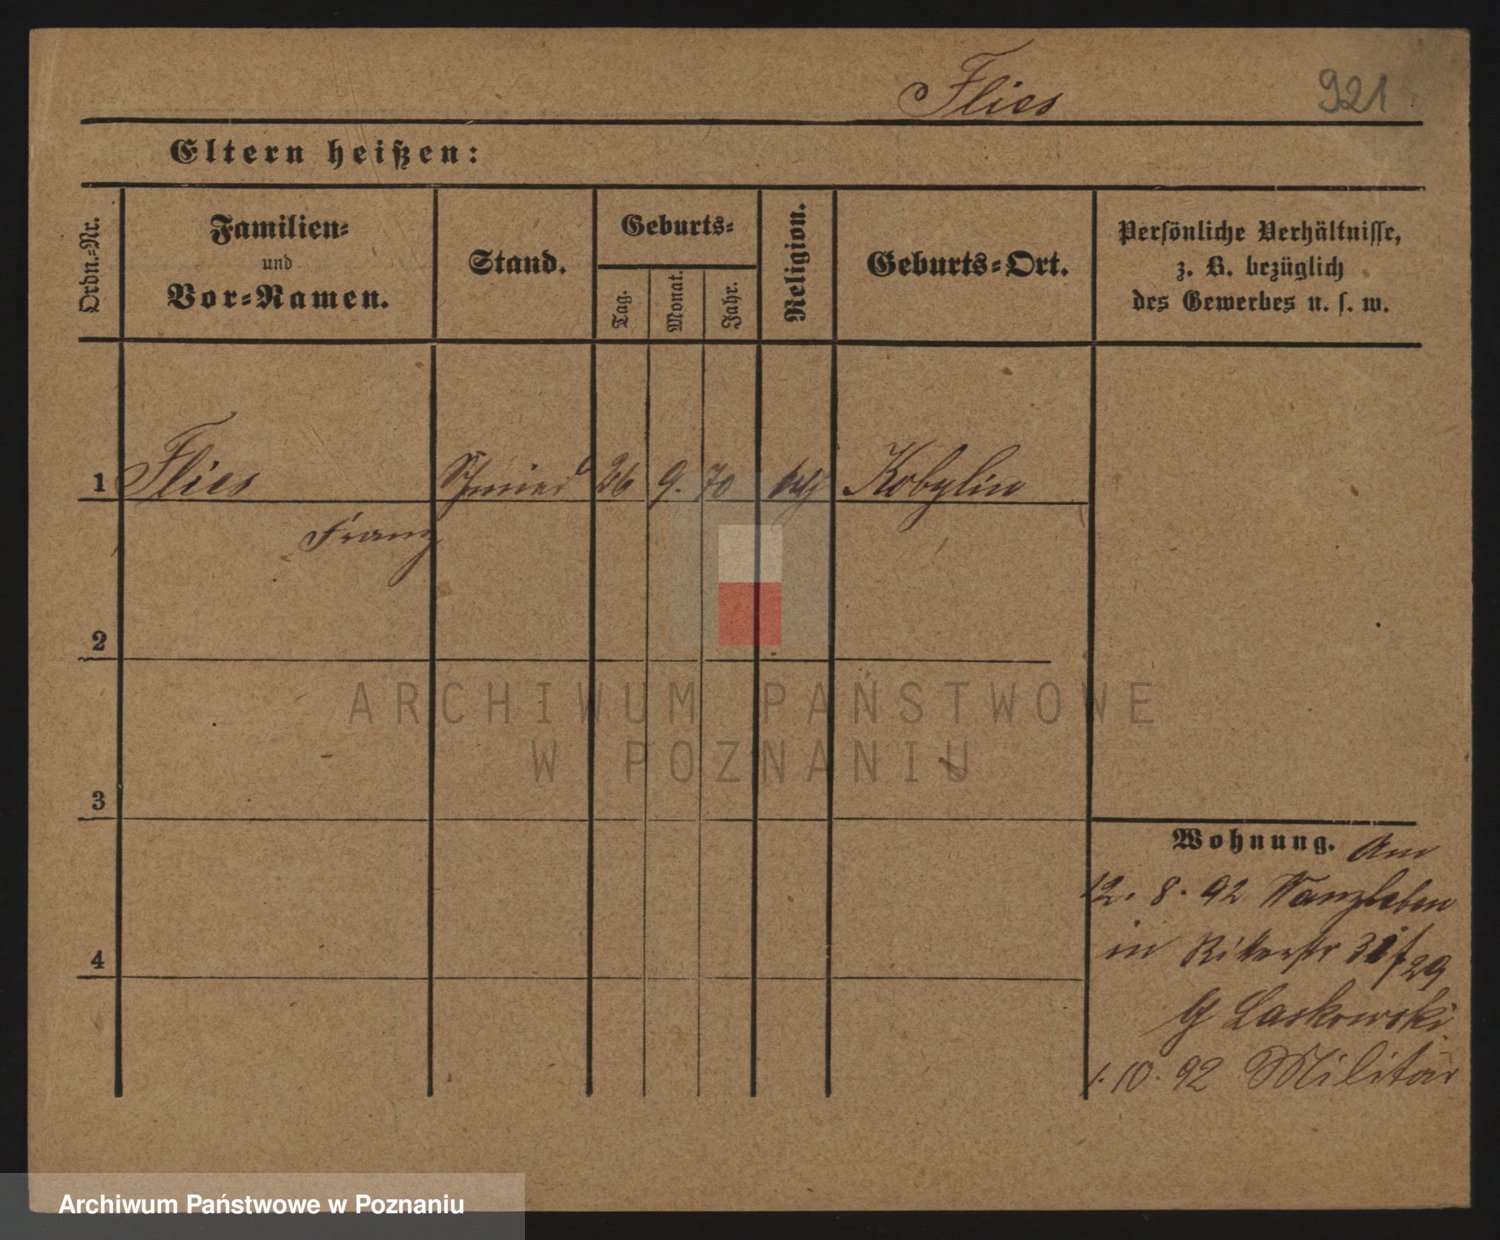 Flies 921
Eltern heißen:
Ordn.-Nr.
Familien-
und
Vor-Namen.
Stand.
Geburts-
Tag.
Monat.
Jahr.
Religion.
Geburts-Ort.
Persönliche Verhältnisse,
z. B. bezüglich
des Gewerbes u. s. w.
1 Flies Schmied 26 9. 70 kth Kobylin
Franz
2
3
4
Wohnung. Am
12. 8. 92 Wanzleben
in Ritterstr 31/29
G Laskowski
1. 10. 92 Militär
ARCHIWUM PAŃSTWOWE
W POZNANIU
Archiwum Państwowe w Poznaniu